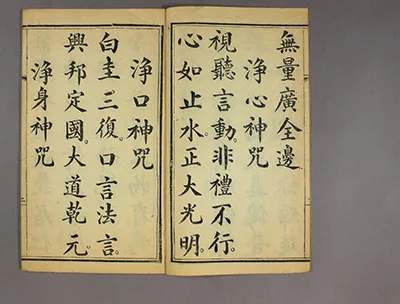 無量廣全邊
淨心神咒
視聽言動。非禮不行。
心如止水。正大光明。
淨口神咒
白圭三復。口言法言。
興邦定國。大道乾元。
淨身神咒